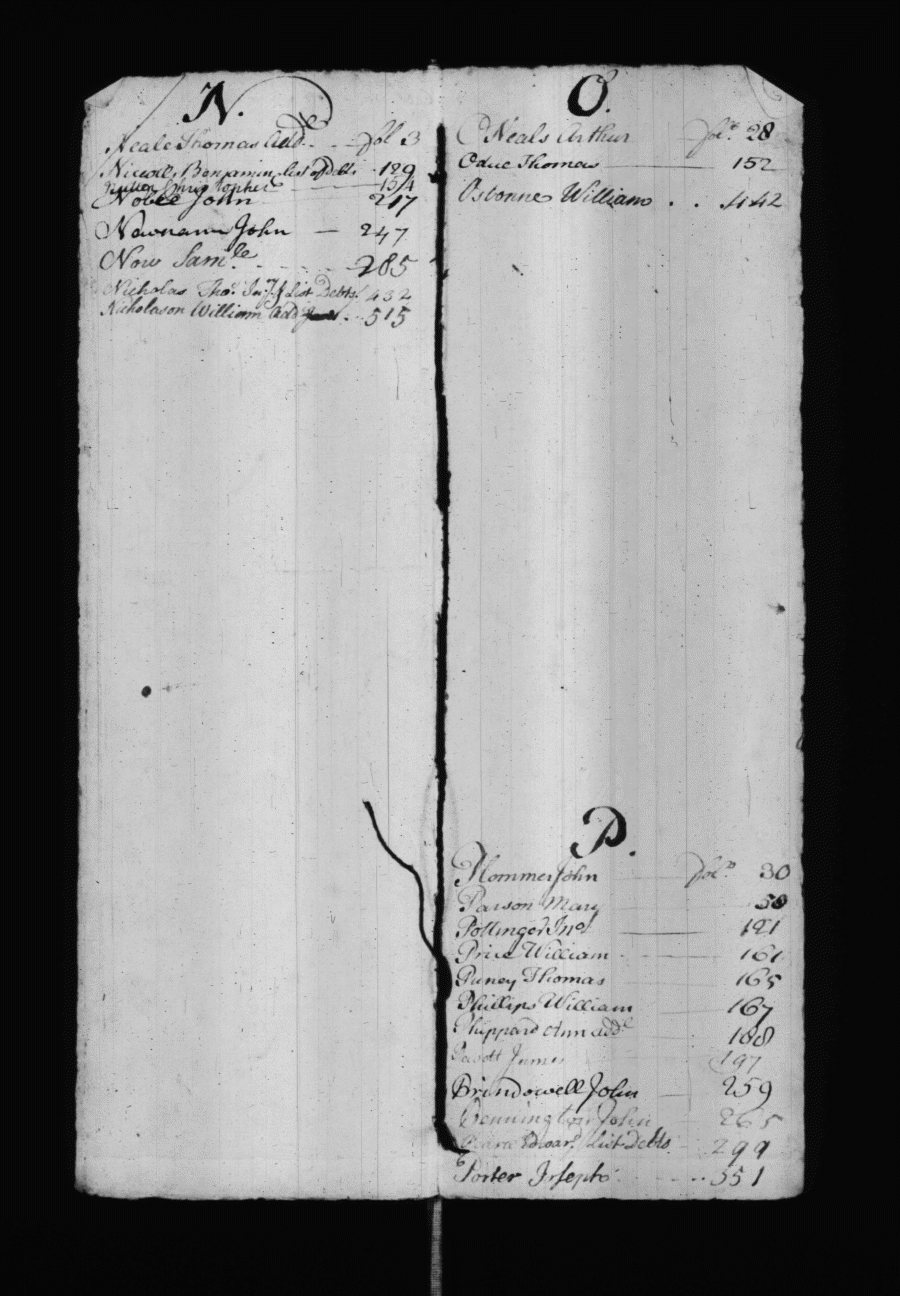 N.
Neale Thomas Add.. de fol 3
Niccoll Benjamin list of Debts 129
Nutter Christopher 154
Noble John 217
Newnam John — 247
Now Sam.le 285
Nicholas Tho.s list Debts 432
Nicholason William add 515
O.
O Neals Arthur fol.o 28
Odue Thomas 152
Osbonne William . . 442
P.
Plommer John fol.o 30
Parson Mary 50
Pottinger Jno 121
Price William 161
Puney Thomas 165
Phillips William 167
Phippard Ann add.l 188
James 197
Brindowell John 259
Pennington John 265
Edwar.d list Debts 299
Porter Joseph 551